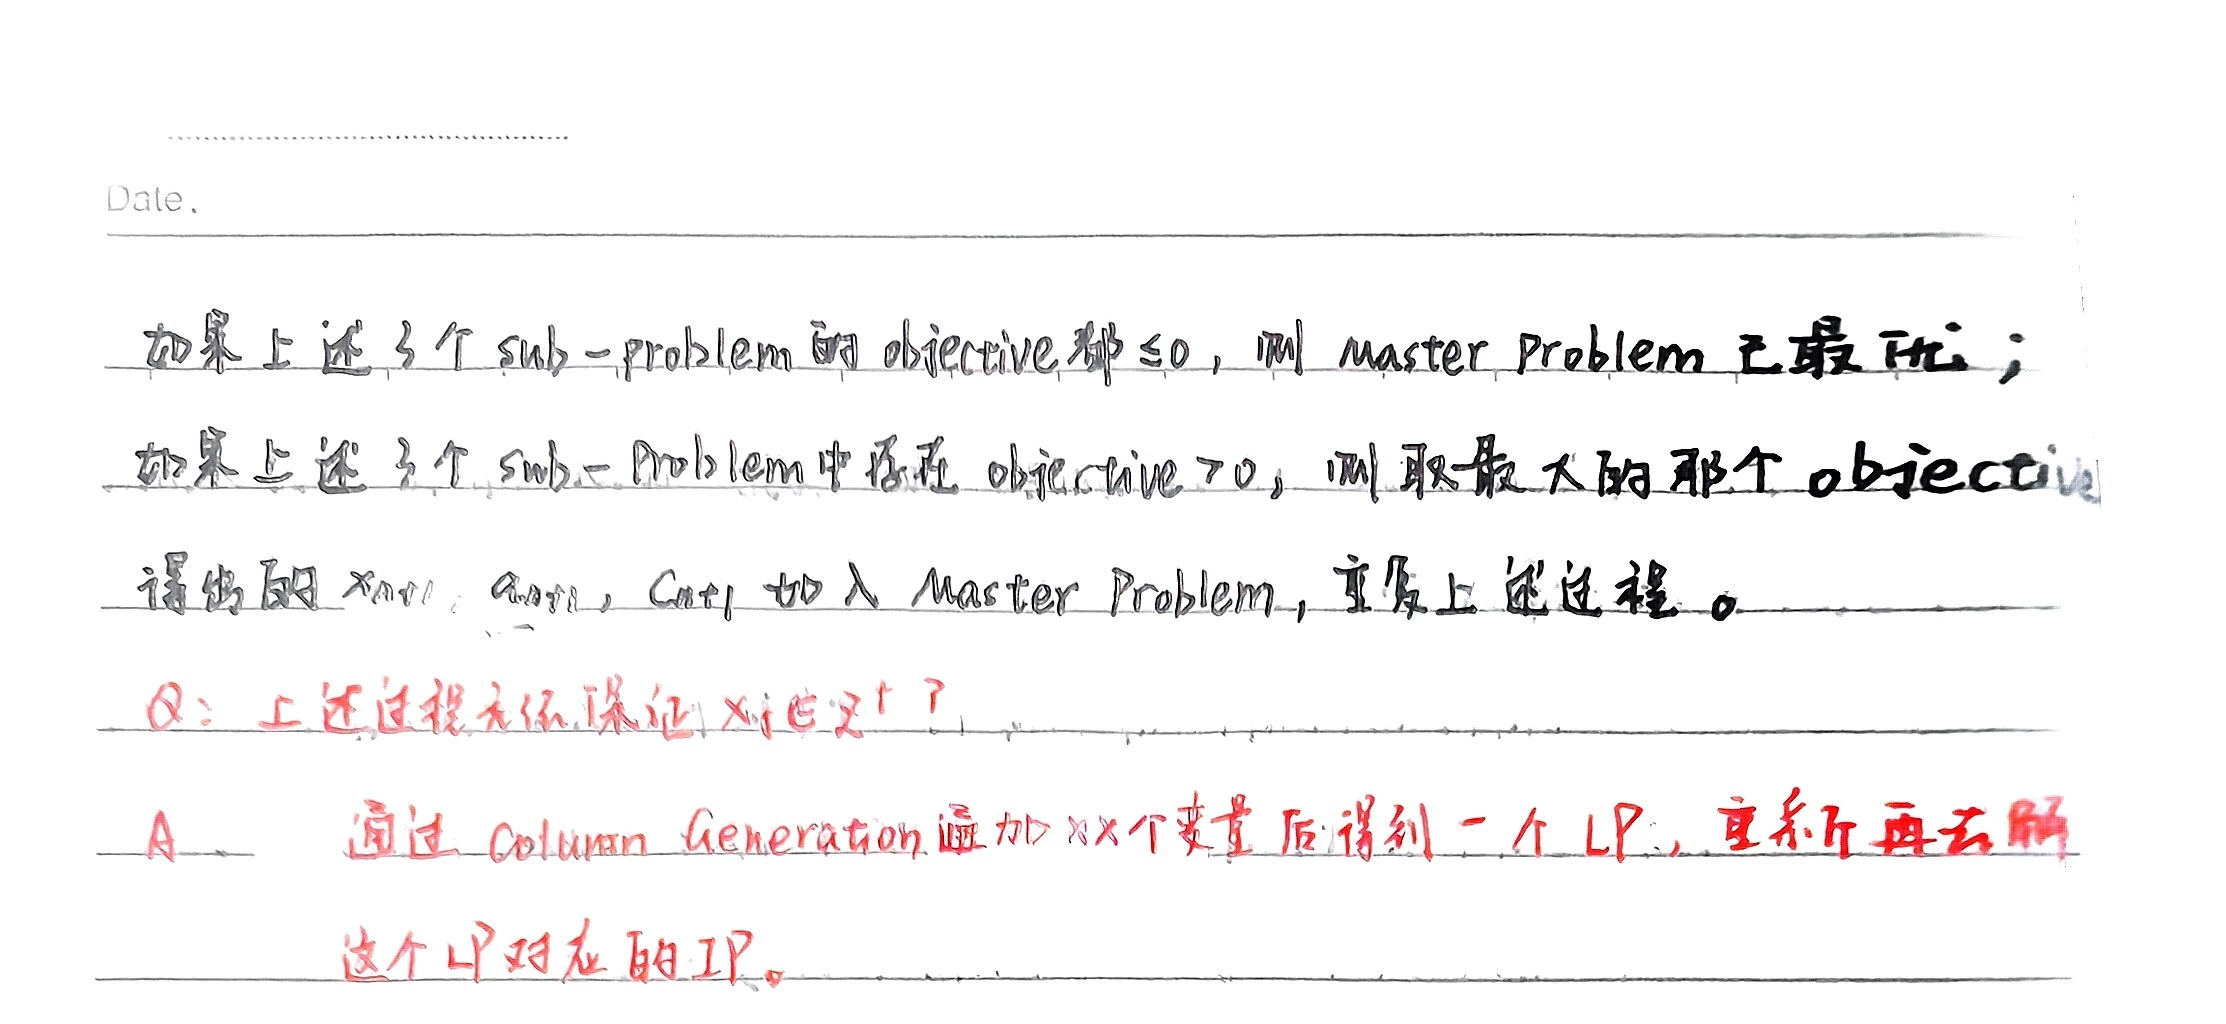 Date.
如果上述3个 sub-problem 的 objective 都 ≤0，则 Master Problem 已最优；
如果上述3个 sub-Problem 中存在 objective >0，则取最大的那个 objective
得出的 xₙ₊₁, aₙ₊₁, Cₙ₊₁ 加入 Master Problem，重复上述过程。
Q: 上述过程无法保证 xⱼ∈Z⁺?
A 通过 Column Generation 添加 xx个变量后得到一个 LP，重新再去解
这个LP对应的IP。